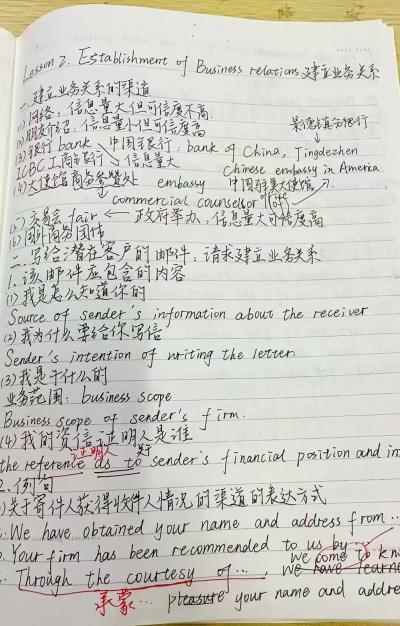 Lesson 2. Establishment of Business relations 建立业务关系
一.建立业务关系的渠道
(1)网络:信息量大但可信度不高.
(2)朋友介绍:信息量小但可信度高
(3)银行 bank 中国银行: bank of China, Jingdezhen 景德镇分银行
ICBC 工商银行 信息量大 Chinese embassy in America
(4)大使馆商务参赞处 embassy 中国驻美大使馆
commercial counsellor office
(5)交易会 fair ← 政府举办,信息量大可信度高
(6)国外商务团体
二.写给潜在客户的邮件,请求建立业务关系
1.该邮件应包含的内容
(1)我是怎么知道你的
Source of sender's information about the receiver
(2)我为什么要给你写信
Sender's intention of writing the letter.
(3)我是干什么的
业务范围: business scope
Business scope of sender's firm.
(4)我的资信证明人是谁
证明人 关于
the reference as to sender's financial position and in
2.例句
关于寄件人获得收件人情况的渠道的表达方式
We have obtained your name and address from...
Your firm has been recommended to us by
we come to kn
Through the courtesy of ... we have learne
承蒙... your name and addre